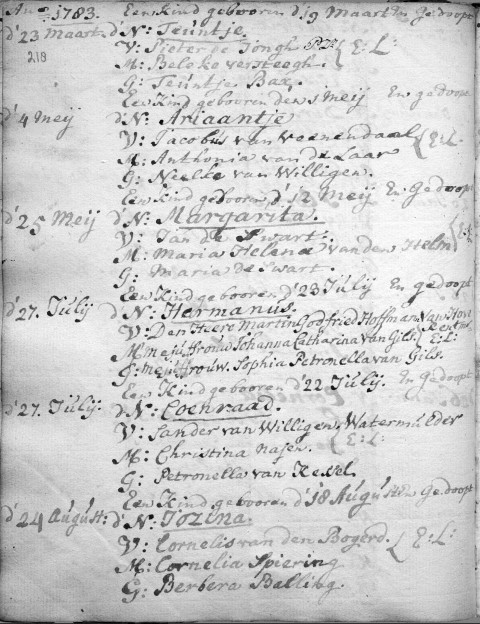 Ano 1783. Een kind gebooren d'19 Maart En gedoopt
d'23 Maart d'N: Teuntje.
218 V: Pieter de Jongh PZ. E: L:
M: Beleke versteegh.
G: Teuntje Bax.
Een Kind gebooren den 1 Meij En gedoopt
d'4 Meij d'N: Ariaantje
V: Jacobus van Veenendaal E: L:
M: Anthonia van de Laar
G: Neelke van Willigen.
Een Kind gebooren d'12 Meij En gedoopt
d'25 Meij d'N: Margarita.
V: Jan de Swart. E: L:
M: Maria Helena van den Helm
G: Maria de Swart.
Een Kind gebooren d'23 Julij En gedoopt
d'27. Julij d'N: Hermanus.
V: Den Heere Martin Godfried Hoffman Van
M: Mejuffrouw Johanna Catharina van Gils. E: L:
G: Mejuffrouw. Sophia Petronella van Gils.
Een Kind gebooren d'22 Julij. En gedoopt
d'27. Julij. d'N: Coenraad.
V: Sander van Willigen, Watermulder
M: Christina E: L:
G: Petronella van Kessel.
Een Kind gebooren d'18 Augustus En Gedoopt
d'24 August: d'N: Jozina.
V: Cornelis van den Bogerd. E: L:
M: Cornelia Spiering
G: Berbera Balling.